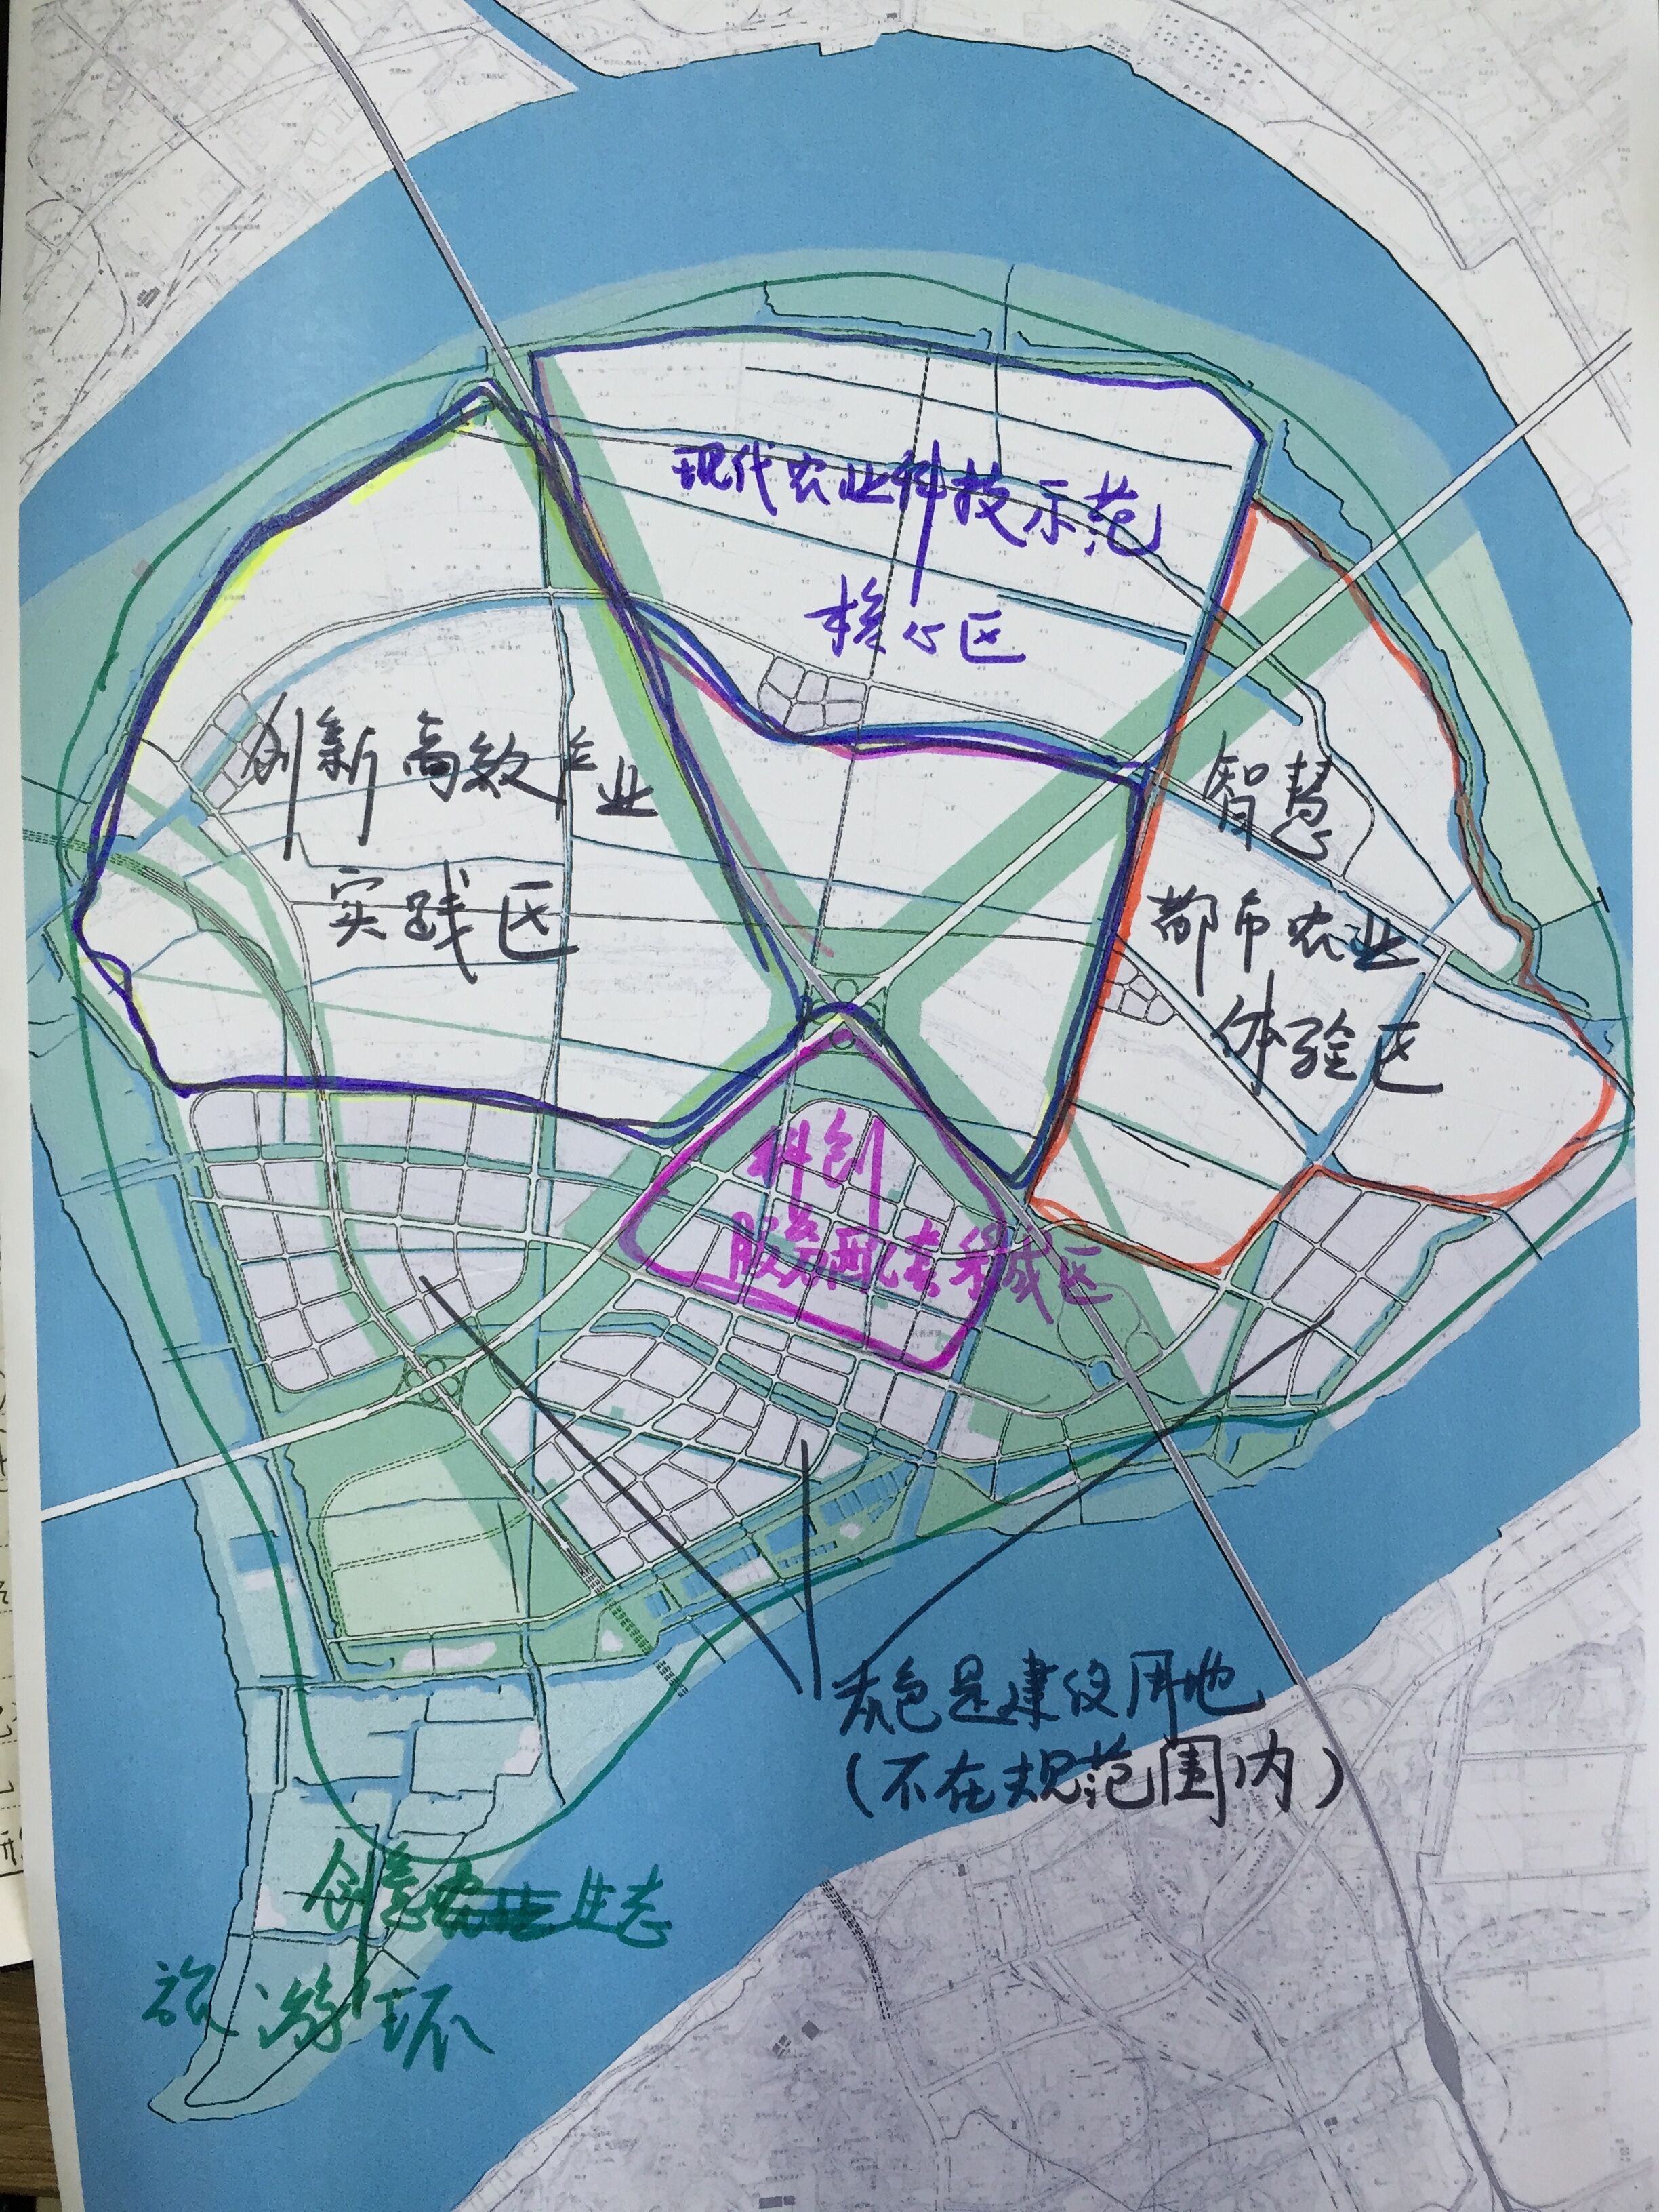 现代农业科技示范
核心区
创新高效农业
实践区
智慧
都市农业
体验区
科创
服务配套集成区
灰色是建设用地
(不在规范围内)
创意生态
旅游环